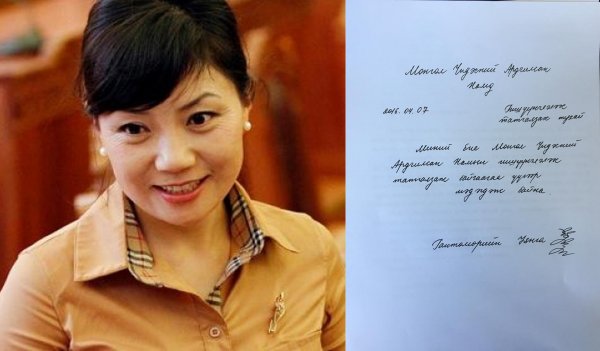 Монгол Үндэсний Ардчилсан
Намд
2016.04.07 Гишүүнчлэлээс
татгалзах тухай
Миний бие Монгол Үндэсний
Ардчилсан Намын гишүүнчлэлээс
татгалзаж байгаагаа үүгээр
мэдэгдэж байна.
Гантөмөрийн Уянга